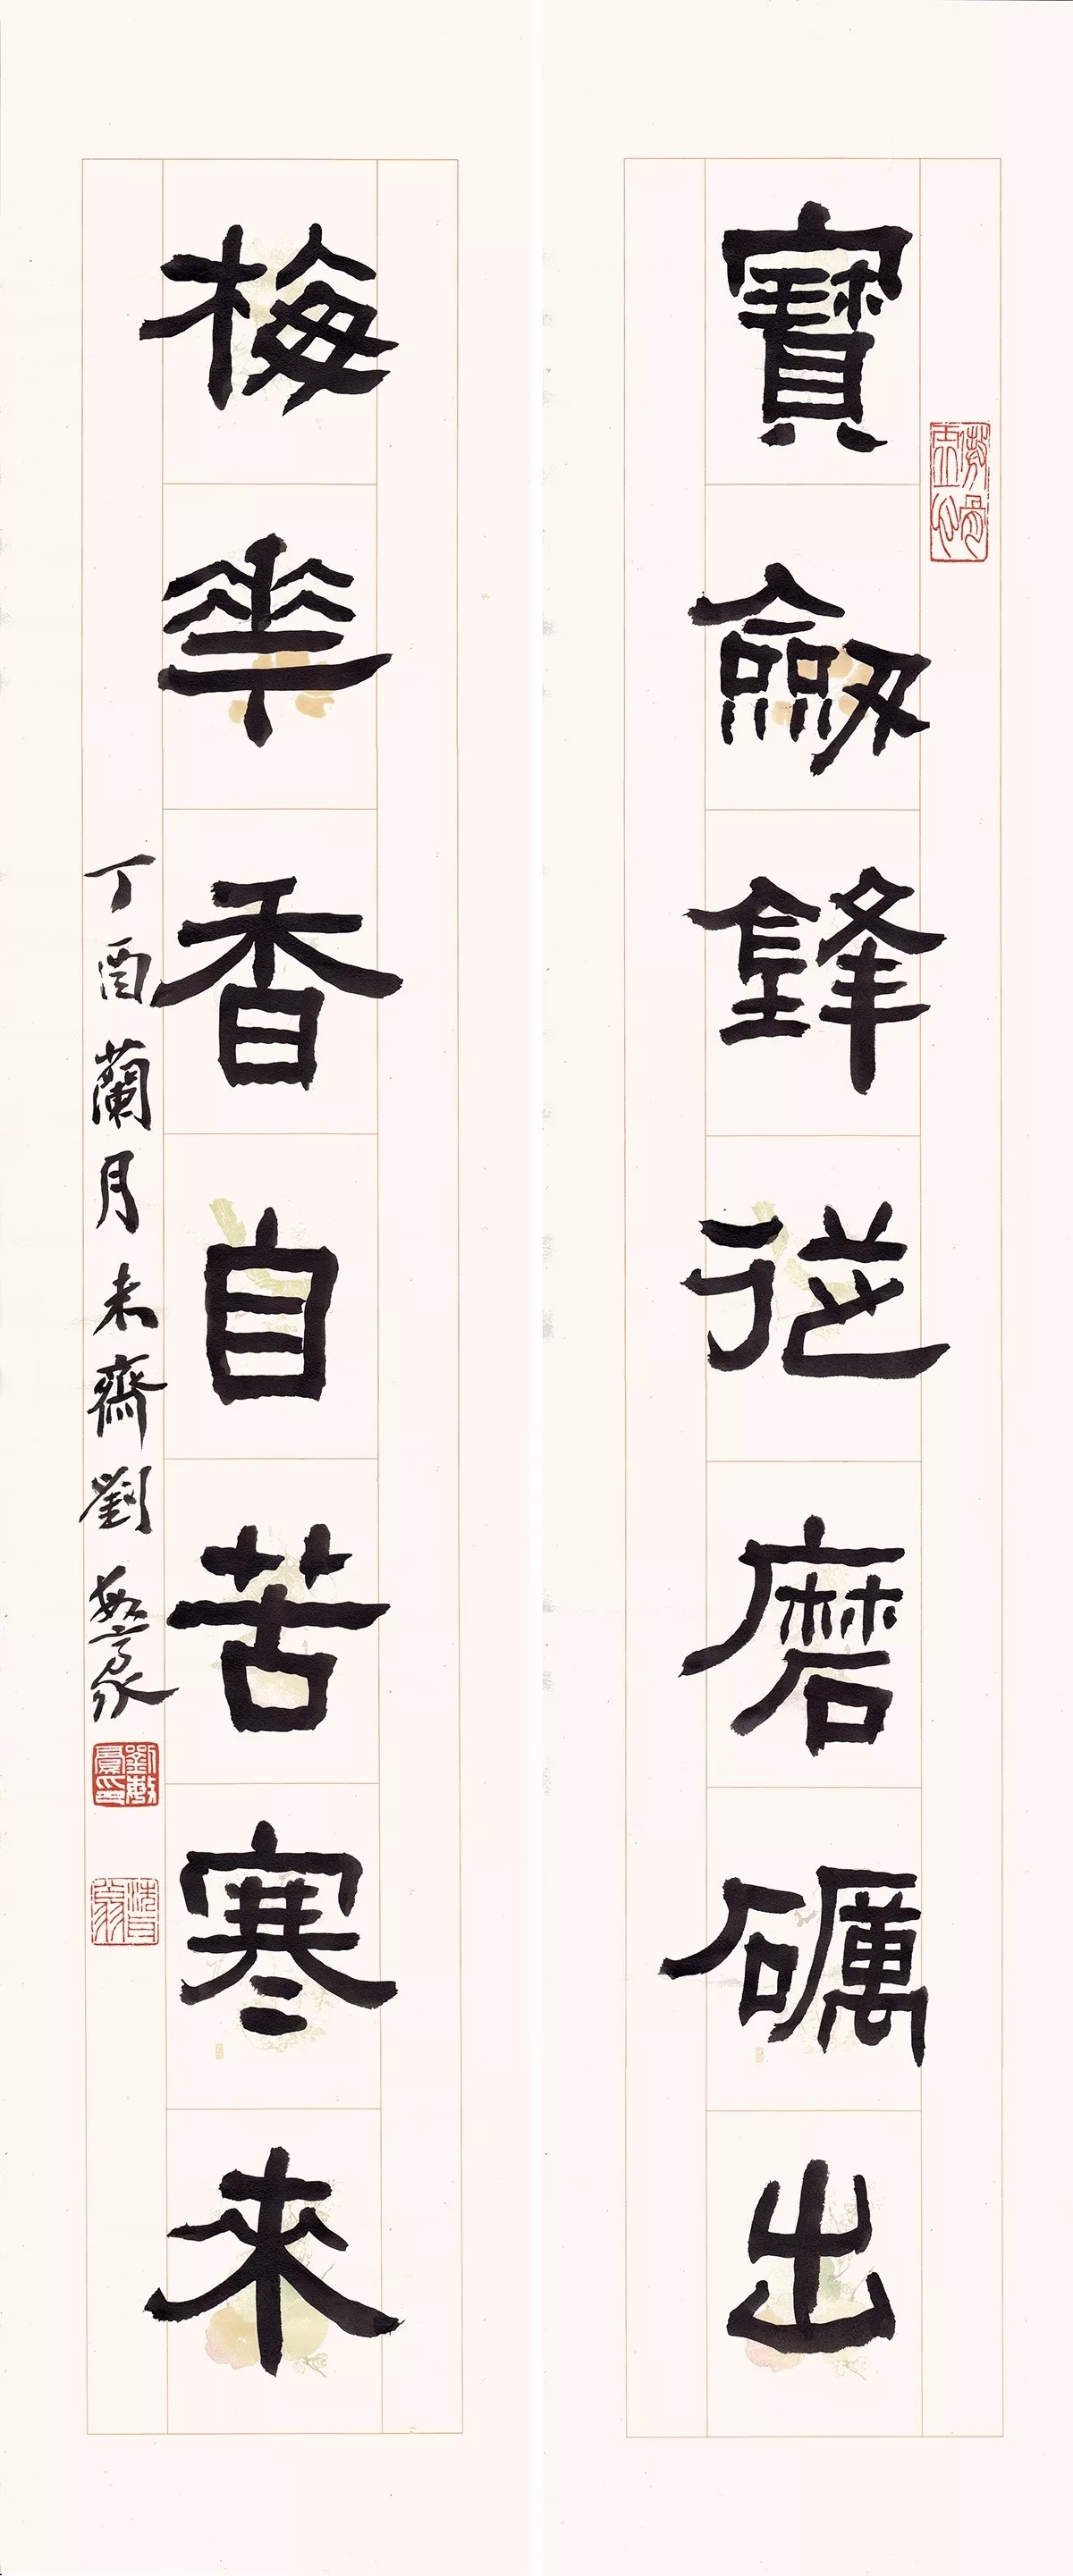 寶劒鋒從磨礪出
梅華香自苦寒來
丁酉蘭月未齋劉